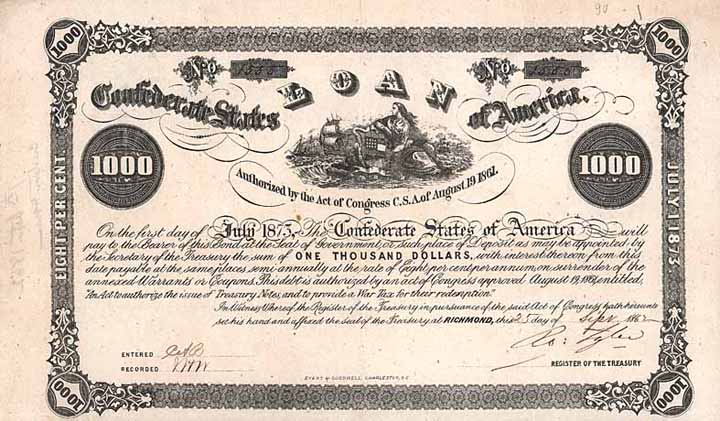 90 1
1000 1000
No No
LOAN
Confederate States of America.
1000 1000
Authorized by the Act of Congress C.S.A. of August 19 1861.
EIGHT PER CENT.
JULY 1 1873
On the first day of July 1873, The Confederate States of America will
pay to the Bearer of this Bond at the Seat of Government, or such place of Deposit as may be appointed by
the Secretary of the Treasury the sum of ONE THOUSAND DOLLARS, with interest thereon from this
date payable at the same place, semi-annually at the rate of Eight per cent per annum on surrender of the
annexed Warrants or Coupons. This debt is authorized by an act of Congress approved August 19, 1861, entitled
"An Act to authorize the issue of Treasury Notes, and to provide a War Tax for their redemption."
In Witness Whereof the Register of the Treasury in pursuance of the said Act of Congress hath hereunto
set his hand and affixed the seal of the Treasury at RICHMOND, this 25 day of Sept 1862
Ro: Tyler
ENTERED
RECORDED
REGISTER OF THE TREASURY
EVANS & COGSWELL, CHARLESTON, S.C.
1000 1000